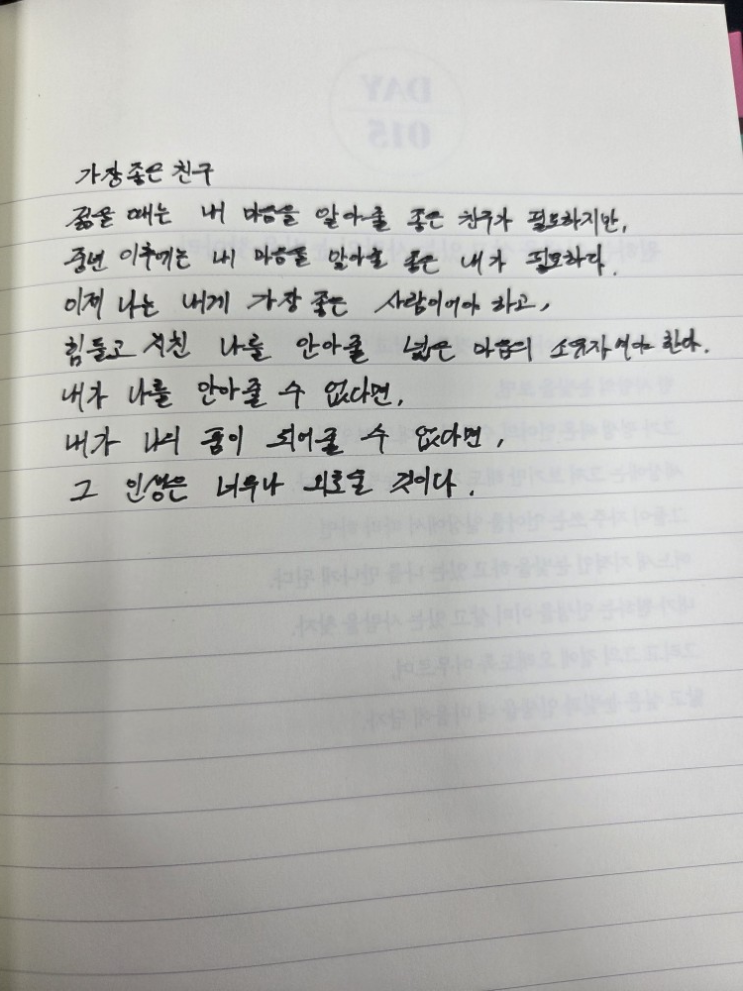 가장 좋은 친구
젊을 때는 내 마음을 알아줄 좋은 친구가 필요하지만,
중년 이후에는 내 마음을 알아줄 좋은 내가 필요하다.
이제 나는 내게 가장 좋은 사람이어야 하고,
힘들고 지친 나를 안아줄 넓은 마음의 소유자여야 한다.
내가 나를 안아줄 수 없다면,
내가 나의 품이 되어줄 수 없다면,
그 인생은 너무나 외로울 것이다.